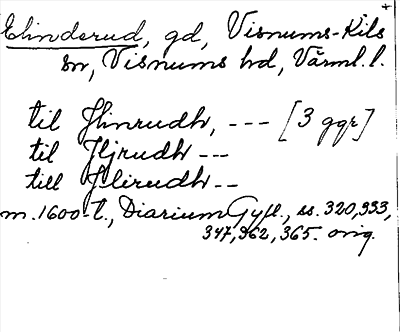 Elinderud, gd, Visnums-Kils
sn, Visnums hd, Värml. l.
til Jlinrudh, --- [3 ggr]
til Jljrudh ---
till Jlirudh --
m. 1600-t., Diarium Gyll., ss. 320, 333,
347, 362, 365. orig.